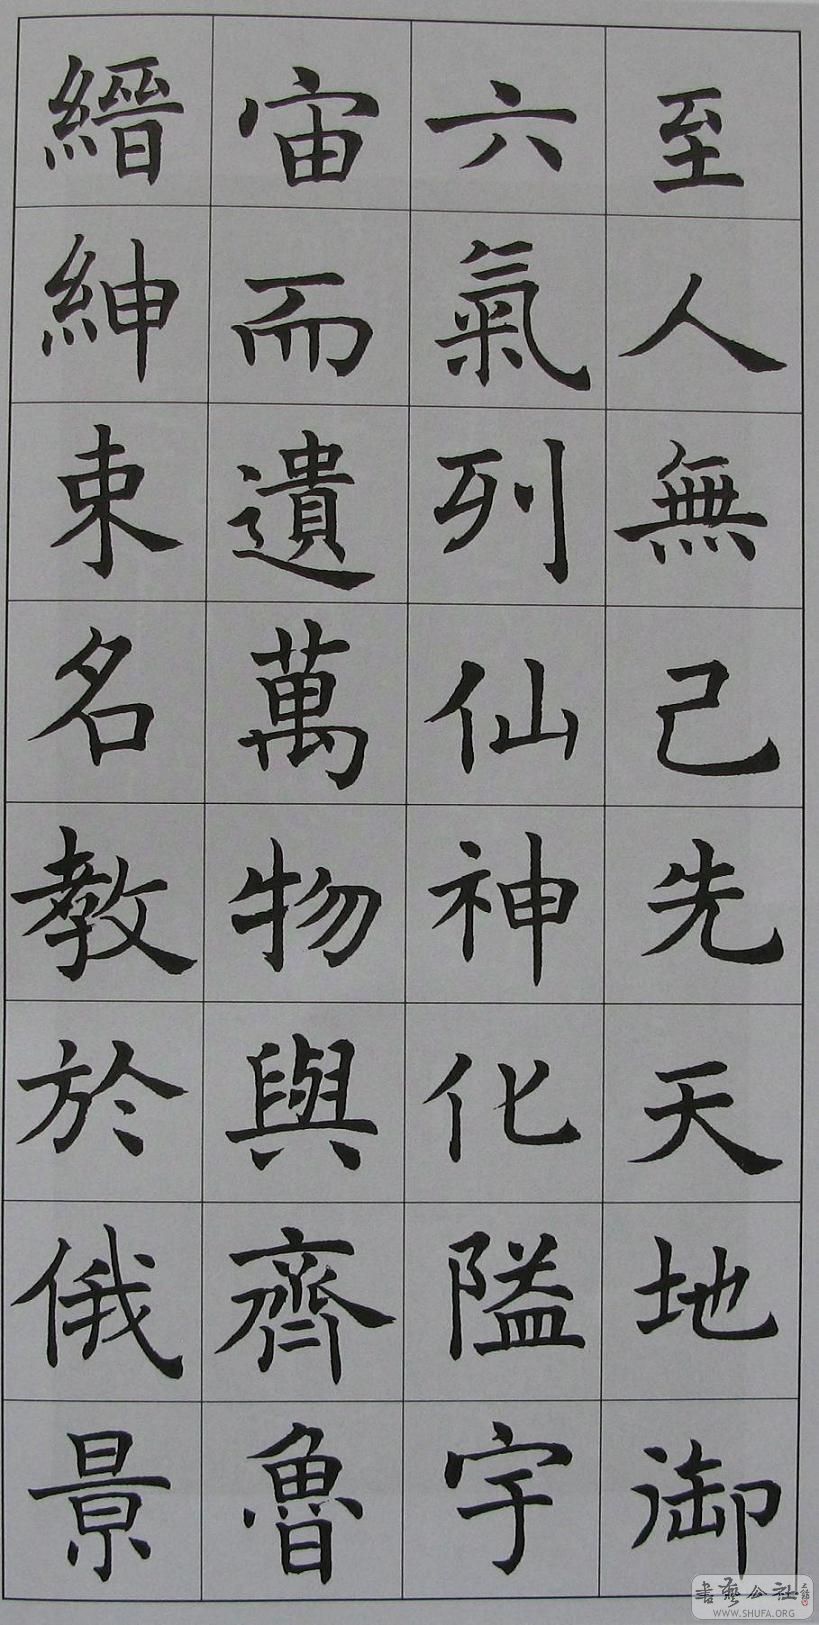 至人無己先天地御
六氣列仙神化隘宇
宙而遺萬物與齊魯
縉紳束名教於俄景
書藝公社
WWW.SHUFA.ORG